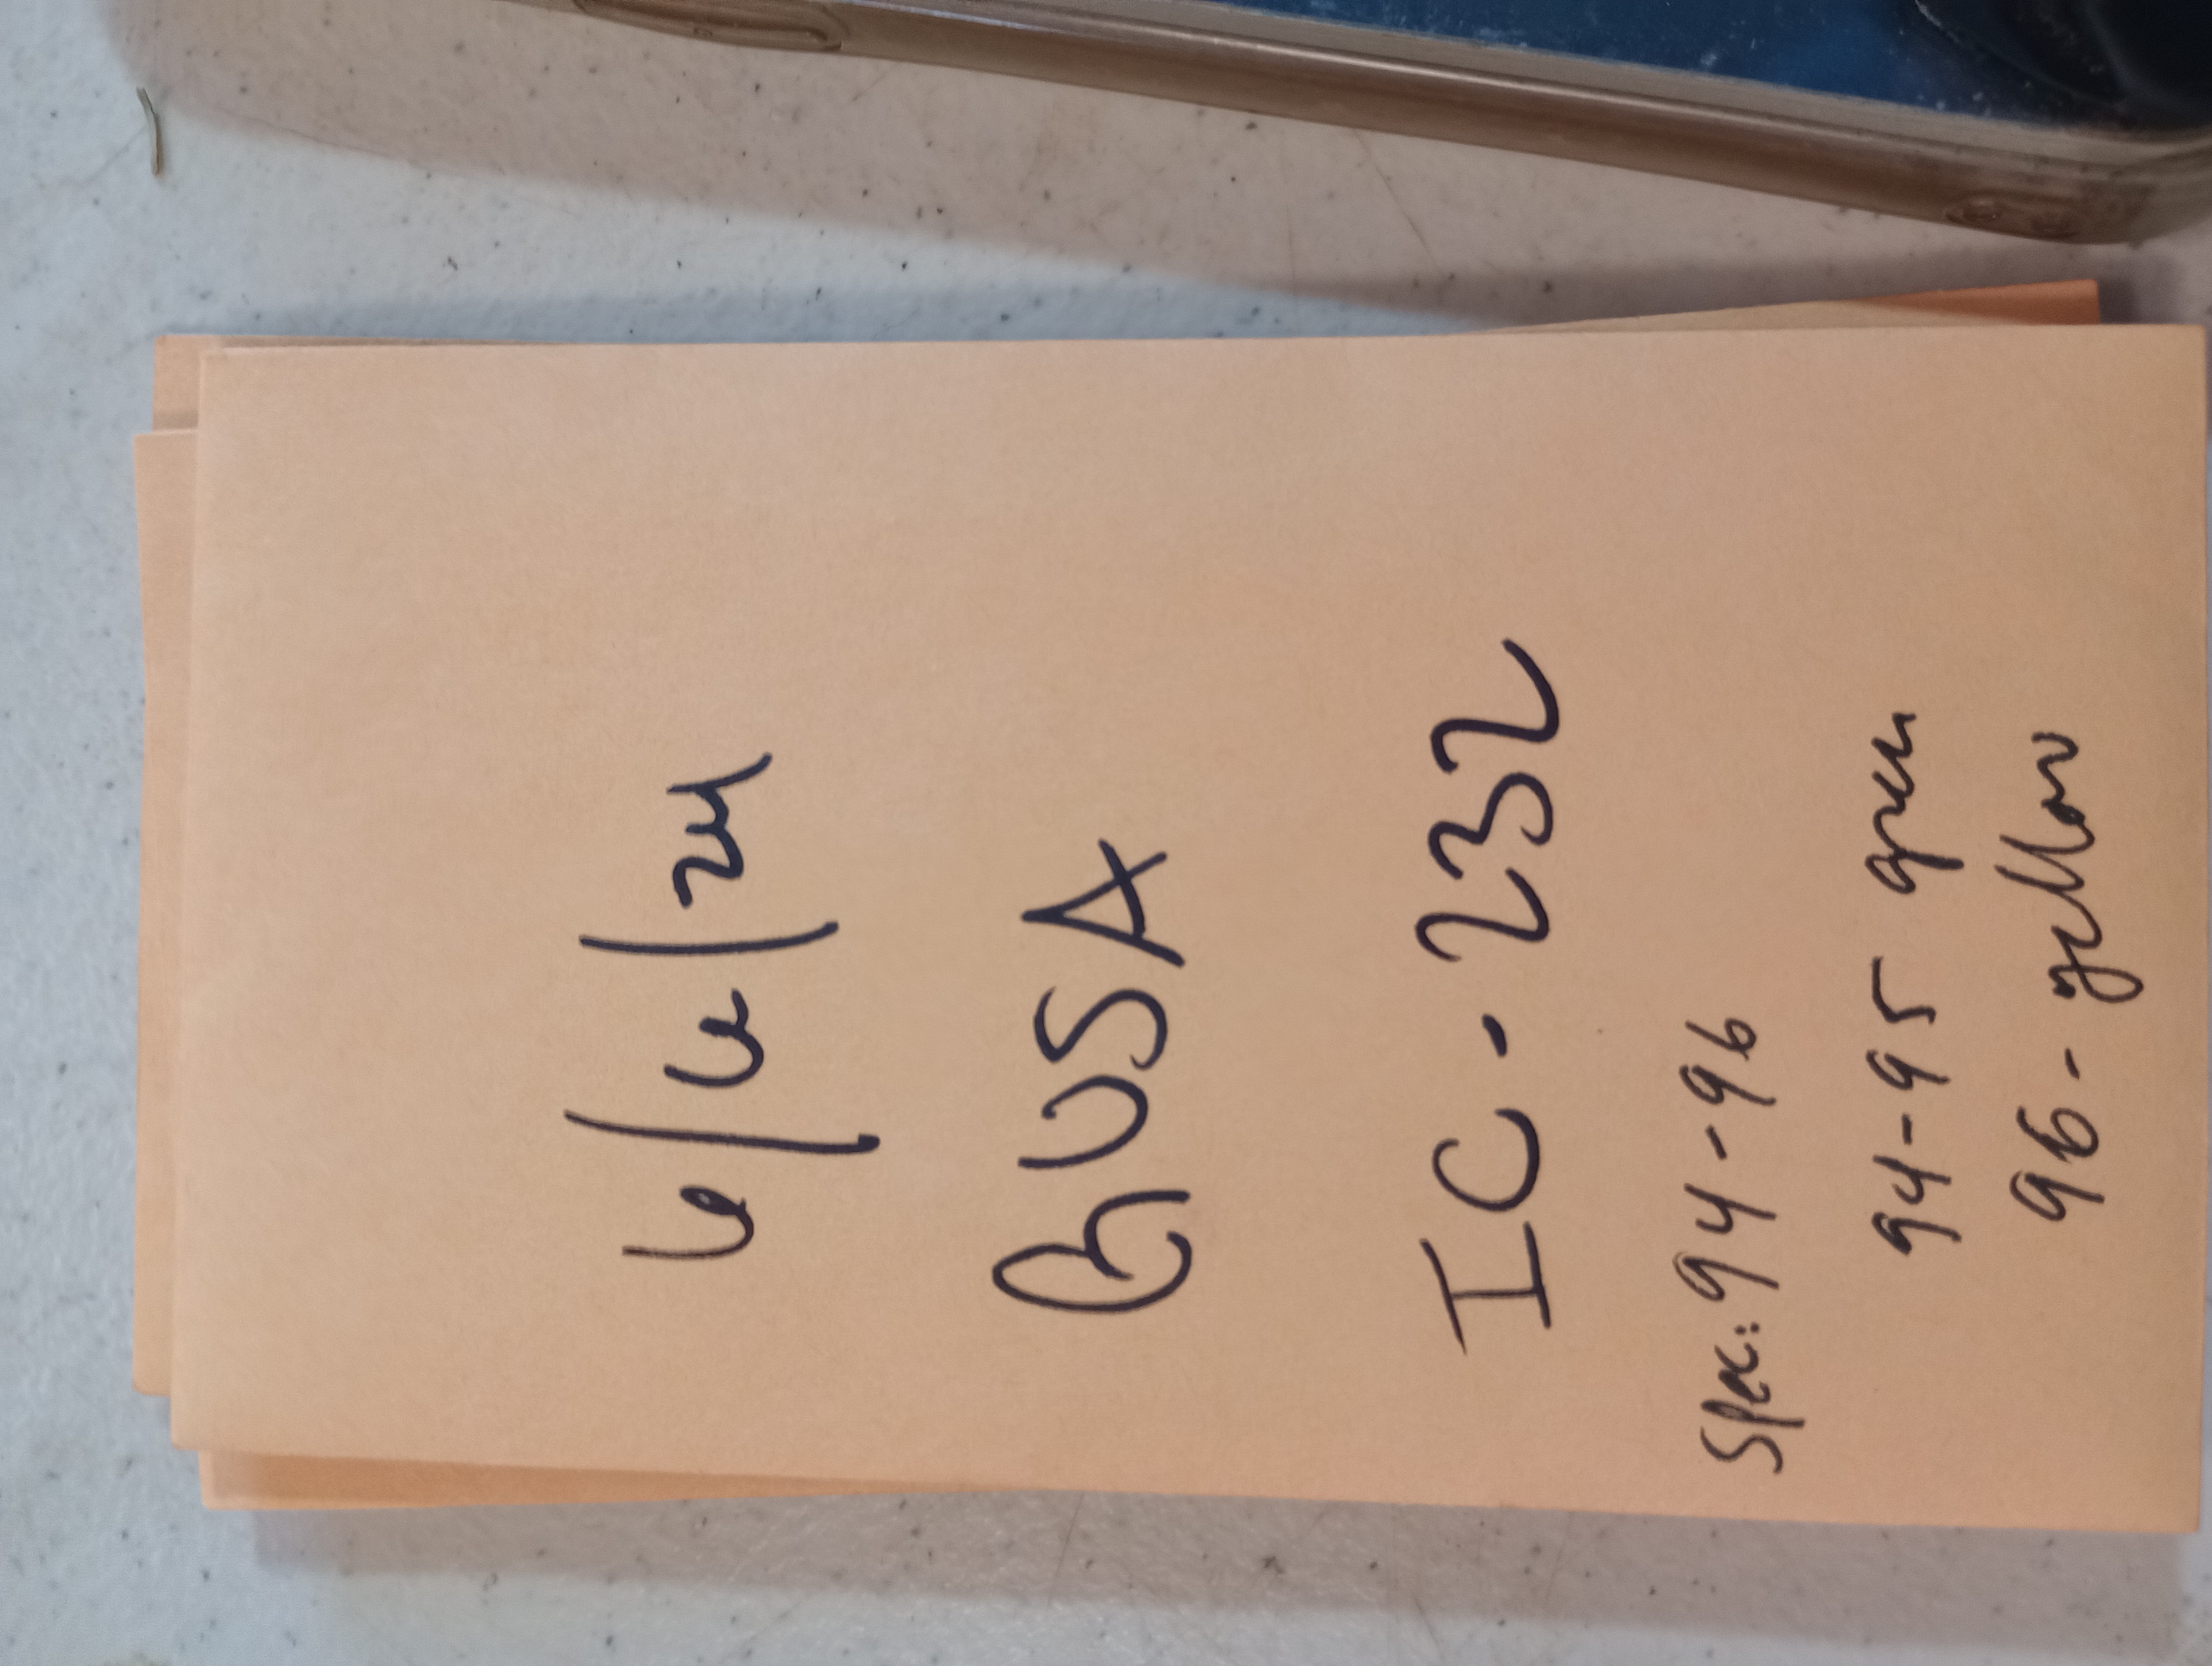 6/6/24
RUSA
IC-232
Spec: 94-96
94-95 green
96-yellow